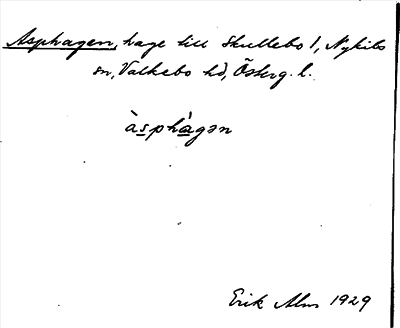 Asphagen, hage till Skullebo 1, Nykils
sn, Valkebo hd, Österg. l.
àsphàgən
Erik Alm 1929